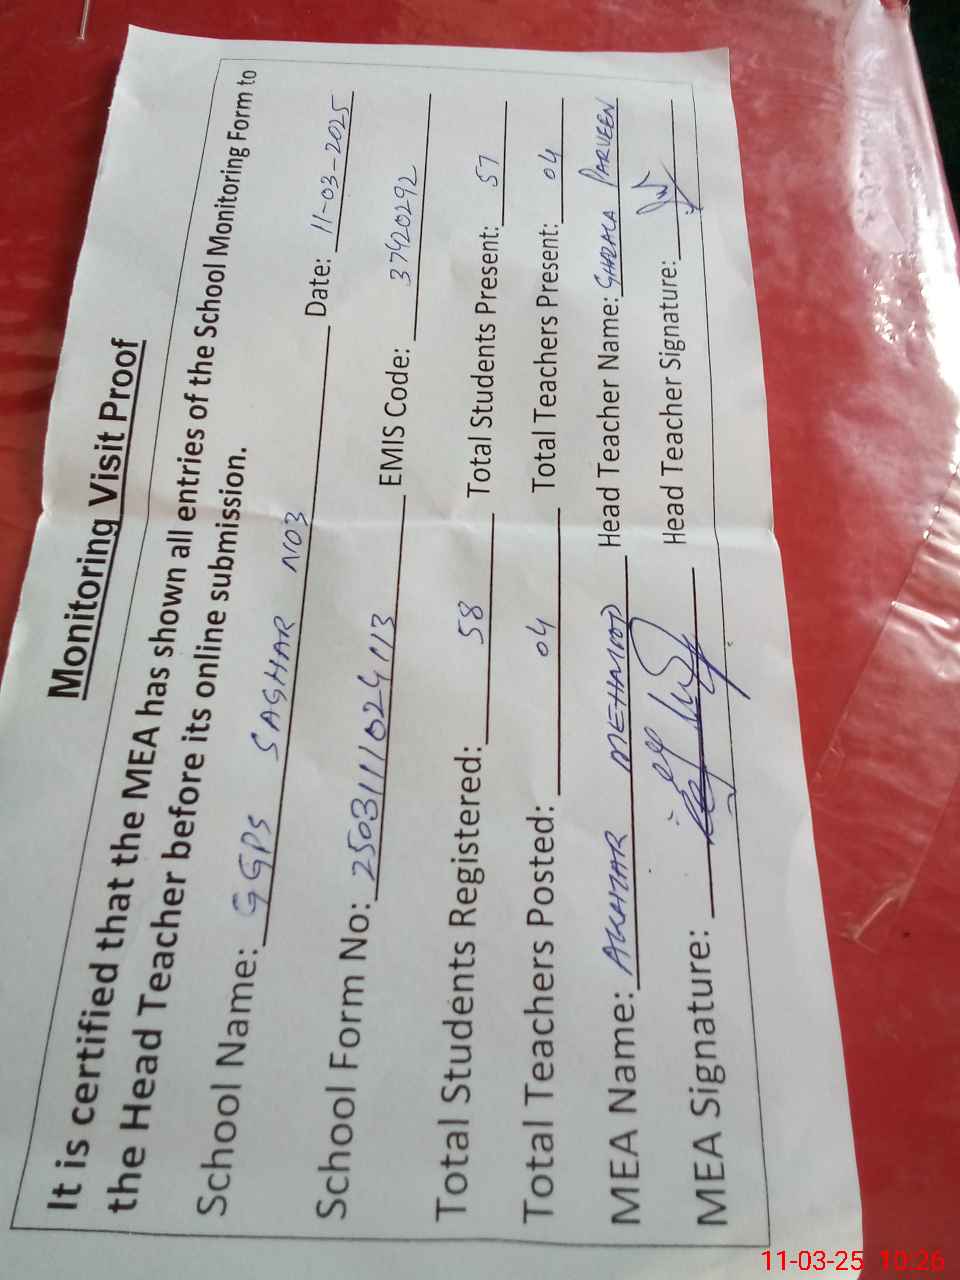 Monitoring Visit Proof
It is certified that the MEA has shown all entries of the School Monitoring Form to
the Head Teacher before its online submission.
School Name: GGPS SAGHAR NO3 Date: 11-03-2025
School Form No: 2503111024113 EMIS Code: 37420292
Total Students Registered: 58 Total Students Present: 57
Total Teachers Posted: 04 Total Teachers Present: 04
MEA Name: MEHMOOD Head Teacher Name: GHAZALA PARVEEN
MEA Signature: Head Teacher Signature:
11-03-25 10:26